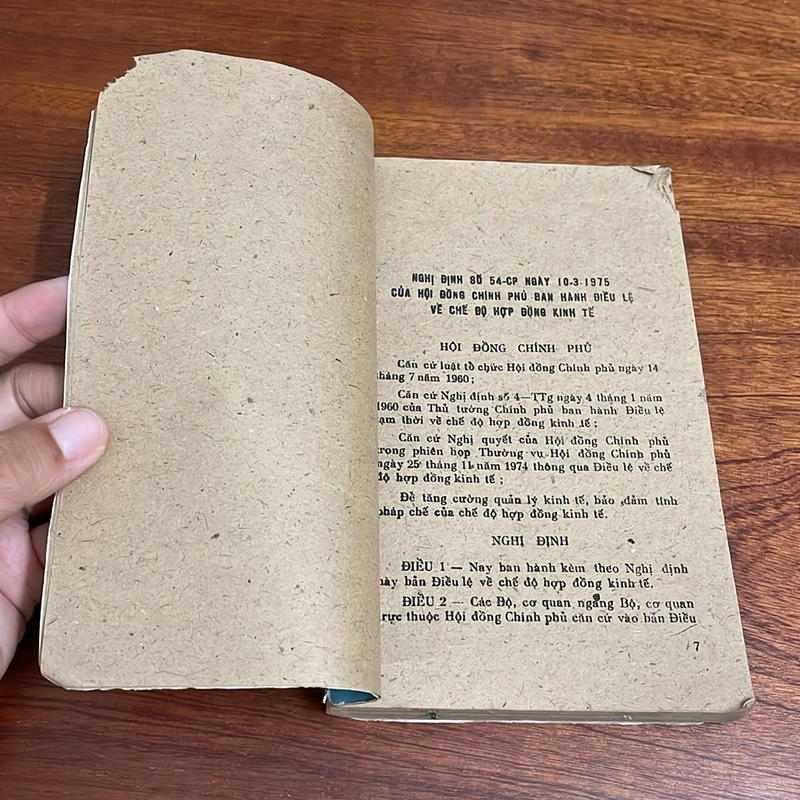 NGHỊ ĐỊNH SỐ 54-CP NGÀY 10-3-1975
CỦA HỘI ĐỒNG CHÍNH PHỦ BAN HÀNH ĐIỀU LỆ
VỀ CHẾ ĐỘ HỢP ĐỒNG KINH TẾ
HỘI ĐỒNG CHÍNH PHỦ
Căn cứ luật tổ chức Hội đồng Chính phủ ngày 14
tháng 7 năm 1960;
Căn cứ Nghị định số 4—TTg ngày 4 tháng 1 năm
1960 của Thủ tướng Chính phủ ban hành Điều lệ
tạm thời về chế độ hợp đồng kinh tế;
Căn cứ Nghị quyết của Hội đồng Chính phủ
trong phiên họp Thường vụ Hội đồng Chính phủ
ngày 25 tháng 11 năm 1974 thông qua Điều lệ về chế
độ hợp đồng kinh tế;
Để tăng cường quản lý kinh tế, bảo đảm tính
pháp chế của chế độ hợp đồng kinh tế.
NGHỊ ĐỊNH
ĐIỀU 1 — Nay ban hành kèm theo Nghị định
này bản Điều lệ về chế độ hợp đồng kinh tế.
ĐIỀU 2 — Các Bộ, cơ quan ngang Bộ, cơ quan
trực thuộc Hội đồng Chính phủ căn cứ vào bản Điều
7